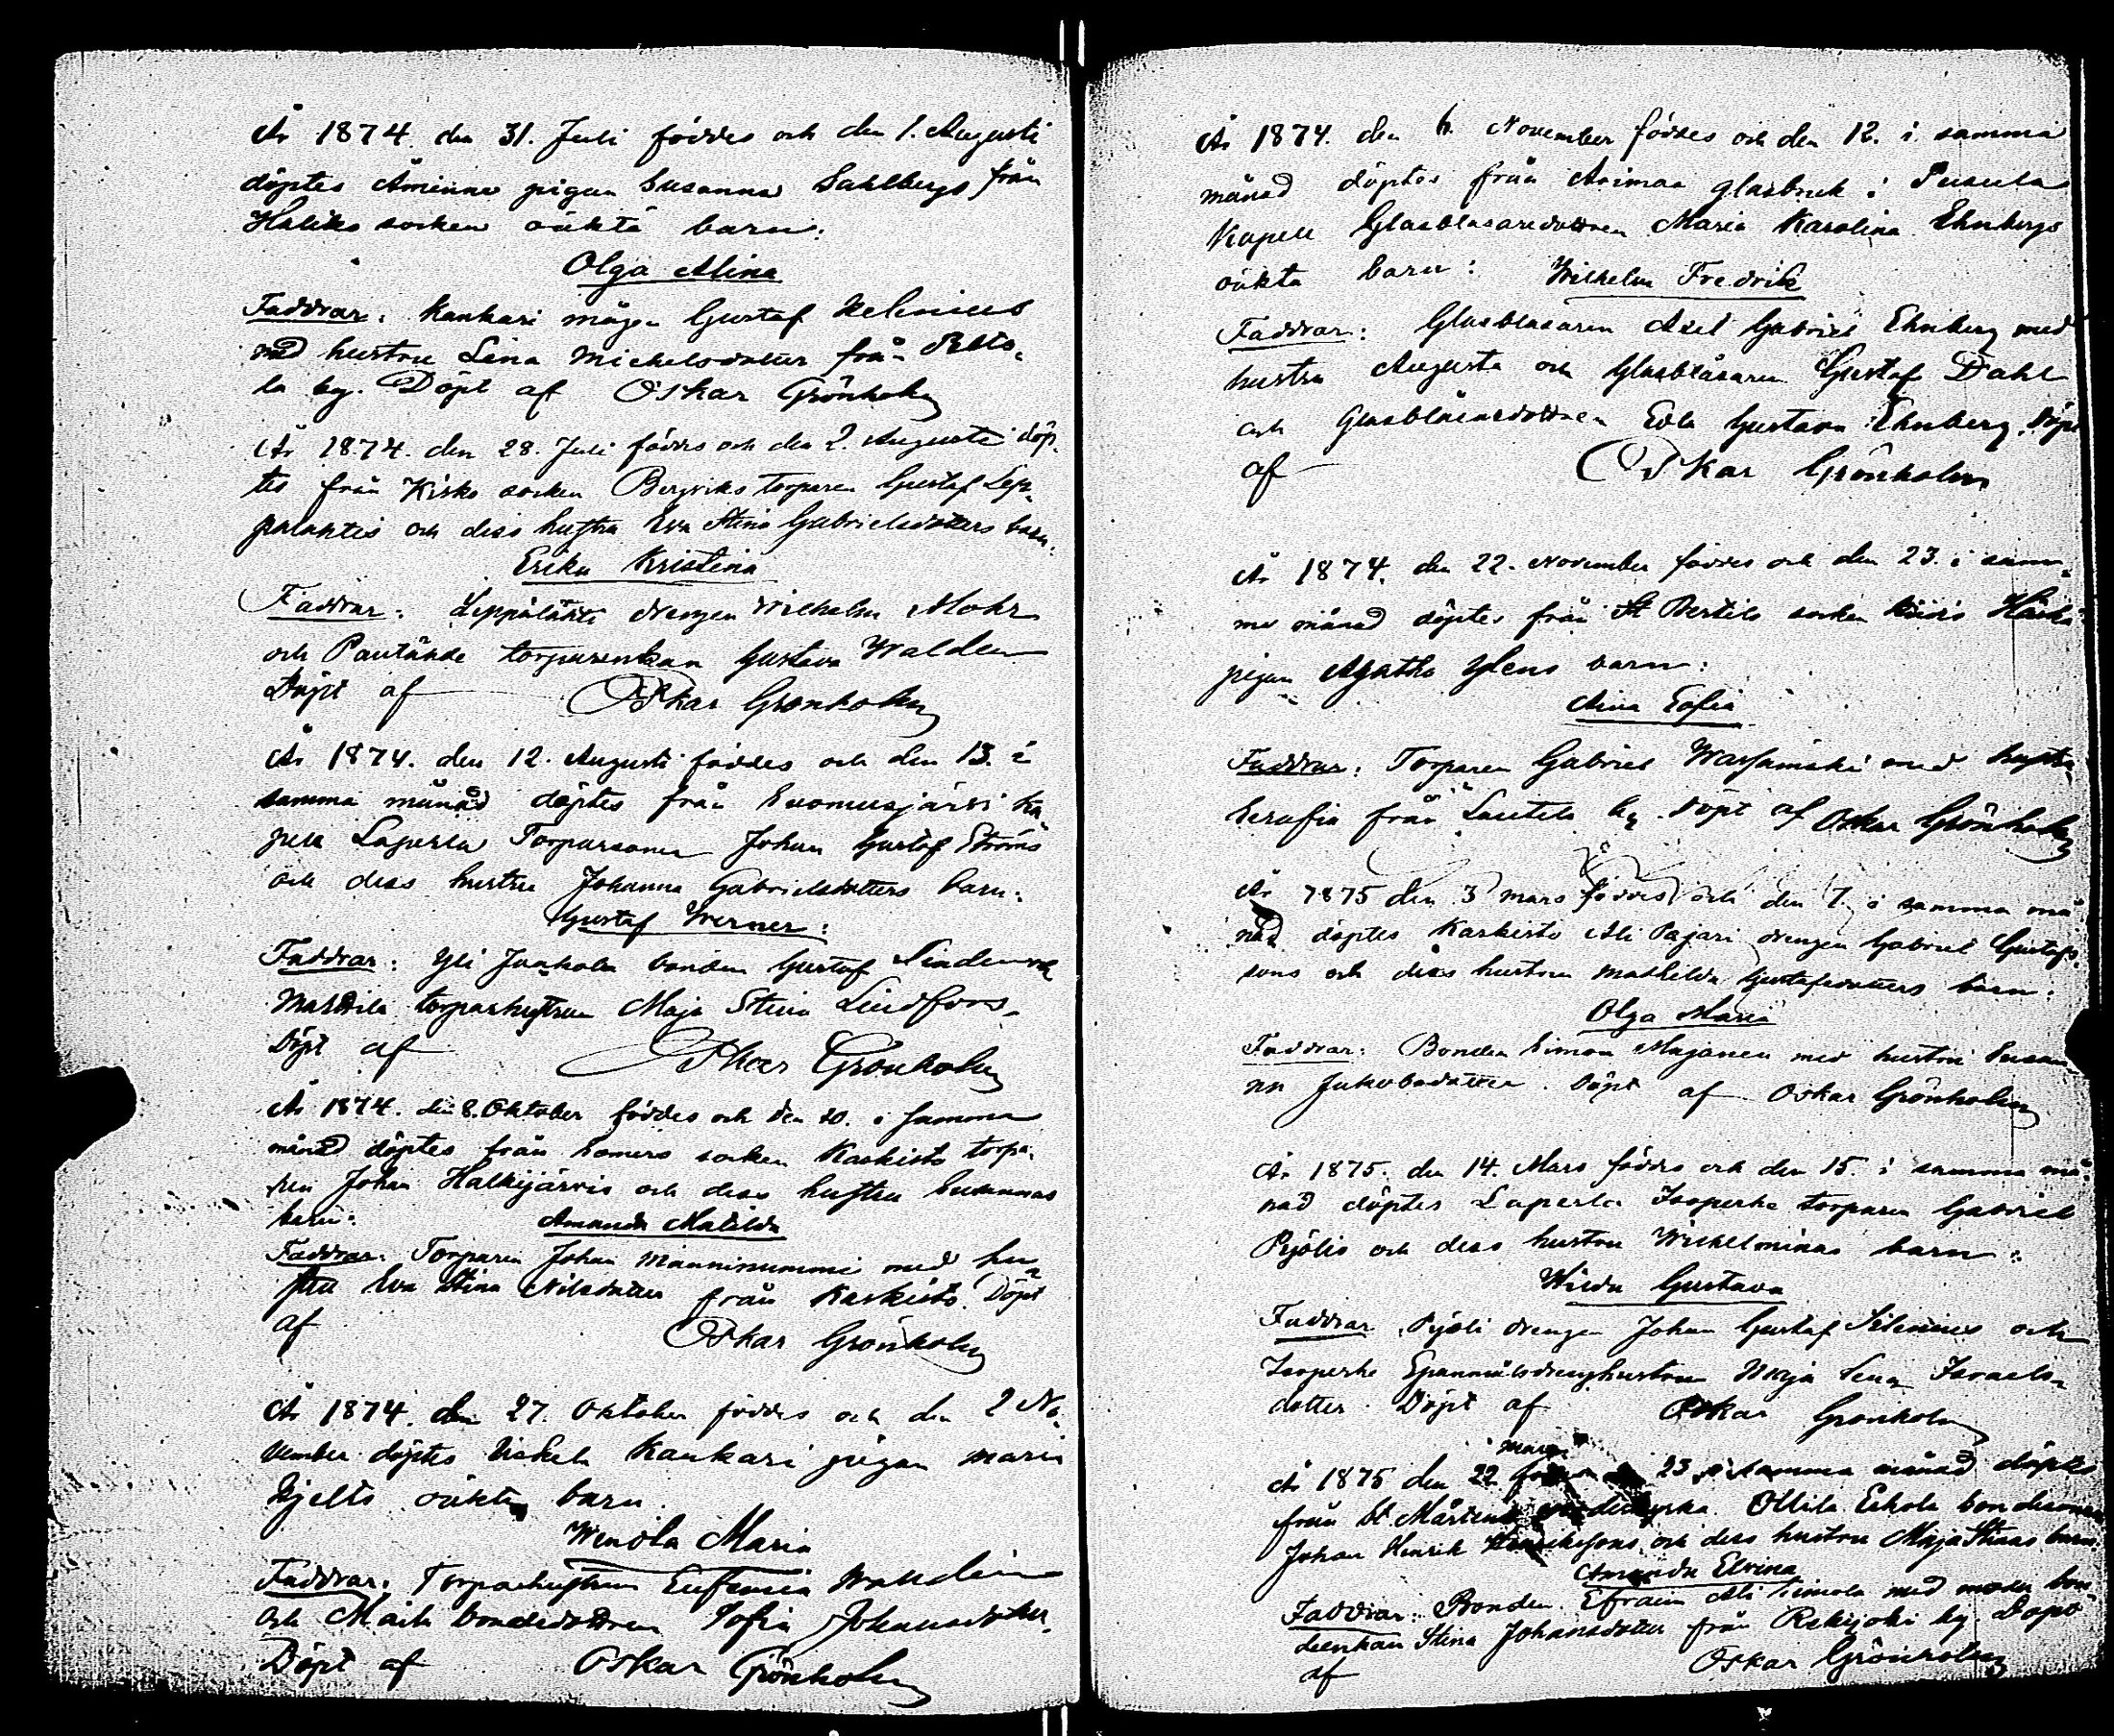 År 1874. den 31. Juli föddes och den 1. Augusti
döptes Åminne pigan Susanna Sahlbergs från
Haliko socken oäkta barn:
Olga Alina
Faddrar: Kankari mågen Gustaf Helenius
med hustru Lena Michelsdotter från Relto-
la by. Döpt af Oskar Grönholm
År 1874. den 28. Juli föddes och den 2. Augusti döp-
tes från Kisko socken Bergviks torparen Gustaf Lep-
pälahtis och dess hustru Eva Stina Gabrielsdotters barn:
Erika Kristina
Faddrar: Leppälahti drengen Wilhelm Mohr
och torparenkan Gustava Walden
Döpt af Oskar Grönholm
År 1874. den 12. Augusti föddes och den 13. i
samma månad döptes från Suomusjärvi ka-
pell Laperla Torparsonen Johan Gustaf Ströms
och dess hustru Johanna Gabrielsdotters barn:
Gustaf Werner:
Faddrar: Yli Junkola bonden Gustaf och
torparhustrun Maja Stina Lindfors.
Döpt af Oskar Grönholm
År 1874. den 8. Oktober föddes och den 10. i samma
månad döptes från Somero socken Kaskisto torpa-
ren Johan Halkijärvis och dess hustru Susannas
barn: Amanda Matilda
Faddrar: Torparen Johan Manninummi med hu-
stru Eva Stina Nilsdotter från Kaskisto. Döpt
af Oskar Grönholm
År 1874. den 27. Oktober föddes och den 2 No-
vember döptes Kankari pigan Maria
Hjelts oäkta barn.
Wendla Maria
Faddrar: Torparhustrun Eufemia Wahlin
och bondedottren Sofia Johansdotter.
Döpt af Oskar Grönholm
År 1874. den 6. November föddes och den 12. i samma
månad döptes från Avimaa glasbruk i Pusula
Kapell Glasblåsaredottren Maria Karolina Ehnbergs
oäkta barn: Wilhelm Fredrik
Faddrar: Glasblåsaren Axel Gabriel Ehnberg med
hustru Augusta och Glasblåsaren Gustaf Dahl
och Glasblåsardottren Edla Gustava Ehnberg. Döpt
af Oskar Grönholm
År 1874. den 22. November föddes och den 23. i sam-
ma månad döptes från St Bertils socken
pigan Agatha Ylens barn:
Aina Sofia
Faddrar: Torparen Gabriel Warsamäki med hustru
Serafia från Lautela by. Döpt af Oskar Grönholm
År 1875 den 3 mars föddes och den 7. i samma må-
nad döptes Kaskisto Ali Pajari drengen Gabriel Gustafs-
sons och dess hustru Mathilda Gustafsdotters barn:
Olga Maria
Faddrar: Bonden Simon Majanen med hustru Susan-
na Jakobsdotter. Döpt af Oskar Grönholm
År 1875. den 14. Mars föddes och den 15. i samma må-
nad döptes Laperla Isoperhe torparen Gabriel
Pyölis och dess hustru Wilhelminas barn:
Wilda Gustava
Faddrar: Pyöli drengen Johan Gustaf Silenius och
Isoperhe Spannmålsdrenghustrun Maja Lena Israels-
dotter. Döpt af Oskar Grönholm
mars
År 1875 den 22 23 i samma månad döptes
från St Mårtens Ollila Eskola bondesonen
Johan Henrik Henrikssons och dess hustru Maja Stinas barn:
Amanda Elvina
Faddrar: Bonden Efraim Ali Simola med moder bon-
deenkan Stina Johansdotter från Rekijoki by. Döpt
af Oskar Grönholm